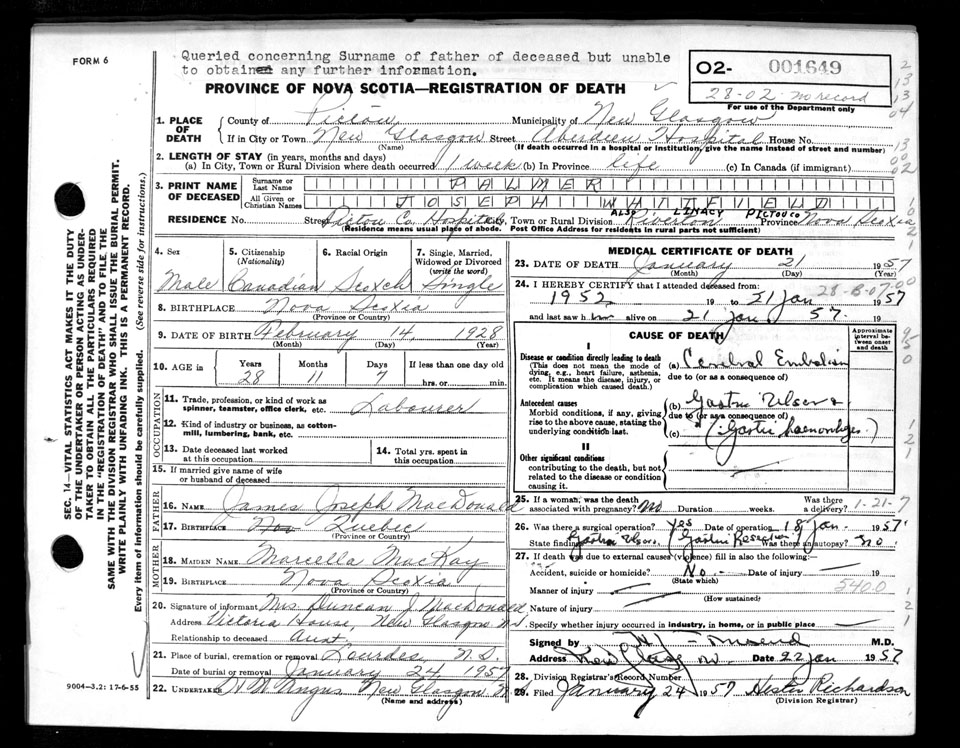 FORM 6
Queried concerning Surname of father of deceased but unable
to obtain any further information.
02- 001649
28-02- no record
For use of the Department only
PROVINCE OF NOVA SCOTIA—REGISTRATION OF DEATH
1. PLACE OF DEATH
County of Pictou Municipality of New Glasgow
If in City or Town New Glasgow Street Aberdeen Hospital House No.
(Name) (If death occurred in a hospital or institution, give the name instead of street and number)
2. LENGTH OF STAY (in years, months and days)
(a) In City, Town or Rural Division where death occurred 1 week (b) In Province life (c) In Canada (if immigrant)
3. PRINT NAME OF DECEASED
Surname or Last Name PALMER
All Given or Christian Names JOSEPH WHITFIELD
ALSO LINACY PICTOU CO
RESIDENCE No. Street Pictou Co. Hospital City, Town or Rural Division Riverton Province Nova Scotia
(Residence means usual place of abode. Post Office Address for residents in rural parts not sufficient)
4. Sex
Male
5. Citizenship (Nationality)
Canadian
6. Racial Origin
Scotch
7. Single, Married, Widowed or Divorced (write the word)
Single
8. BIRTHPLACE Nova Scotia
(Province or Country)
9. DATE OF BIRTH February 14, 1928
(Month) (Day) (Year)
10. AGE in Years Months Days If less than one day old
28 11 7 hrs. or min.
OCCUPATION
11. Trade, profession, or kind of work as spinner, teamster, office clerk, etc. Labourer
12. Kind of industry or business, as cotton-mill, lumbering, bank, etc.
13. Date deceased last worked at this occupation
14. Total yrs. spent in this occupation
15. If married give name of wife or husband of deceased
FATHER
16. NAME James Joseph MacDonald
17. BIRTHPLACE Nov Quebec
(Province or Country)
MOTHER
18. MAIDEN NAME Marcella MacKay
19. BIRTHPLACE Nova Scotia
(Province or Country)
20. Signature of informant Mrs. Duncan J. MacDonald
Address Victoria House, New Glasgow N.S.
Relationship to deceased Aunt.
21. Place of burial, cremation or removal Lourdes, N.S.
Date of burial or removal January 24 1957
22. UNDERTAKER H W Angus New Glasgow N
(Name and address)
MEDICAL CERTIFICATE OF DEATH
23. DATE OF DEATH January 21 1957
(Month) (Day) (Year)
24. I HEREBY CERTIFY that I attended deceased from:
28-B-07-00
1952 19 to 21 Jan 1957
and last saw him alive on 21 Jan 57. 19
CAUSE OF DEATH
Approximate interval between onset and death
I
Disease or condition directly leading to death
(This does not mean the mode of dying, e.g., heart failure, asthenia, etc. It means the disease, injury, or complication which caused death.)
(a) Cerebral Embolism
due to (or as a consequence of)
Antecedent causes
Morbid conditions, if any, giving rise to the above cause, stating the underlying condition last.
(b) Gastric Ulcers
due to (or as a consequence of)
(c) (Gastric haemorrhages.)
II
Other significant conditions
contributing to the death, but not related to the disease or condition causing it.
25. If a woman, was the death associated with pregnancy? No Duration weeks. Was there a delivery? 1-21-7
26. Was there a surgical operation? Yes Date of operation 18 Jan - 1957
State findings Gastric Ulcer. (Gastric Resection) Was there an autopsy? No.
27. If death was due to external causes (violence) fill in also the following:—
Accident, suicide or homicide? No. - Date of injury 19
(State which)
Manner of injury 540.0
(How sustained)
Nature of injury
Specify whether injury occurred in industry, in home, or in public place
Signed by M.D.
Address New Glasg N.S. Date 22 Jan 1957
28. Division Registrar's Record Number
29. Filed January 24 1957 Hester Richardson
(Division Registrar)
SEC. 14—VITAL STATISTICS ACT MAKES IT THE DUTY
OF THE UNDERTAKER OR PERSON ACTING AS UNDER-
TAKER TO OBTAIN ALL THE PARTICULARS REQUIRED
IN THE "REGISTRATION OF DEATH" AND TO FILE THE
SAME WITH THE DIVISION REGISTRAR WHO SHALL ISSUE THE BURIAL PERMIT.
WRITE PLAINLY WITH UNFADING INK. THIS IS A PERMANENT RECORD.
Every item of information should be carefully supplied. (See reverse side for instructions.)
9004-3.2: 17-6-55